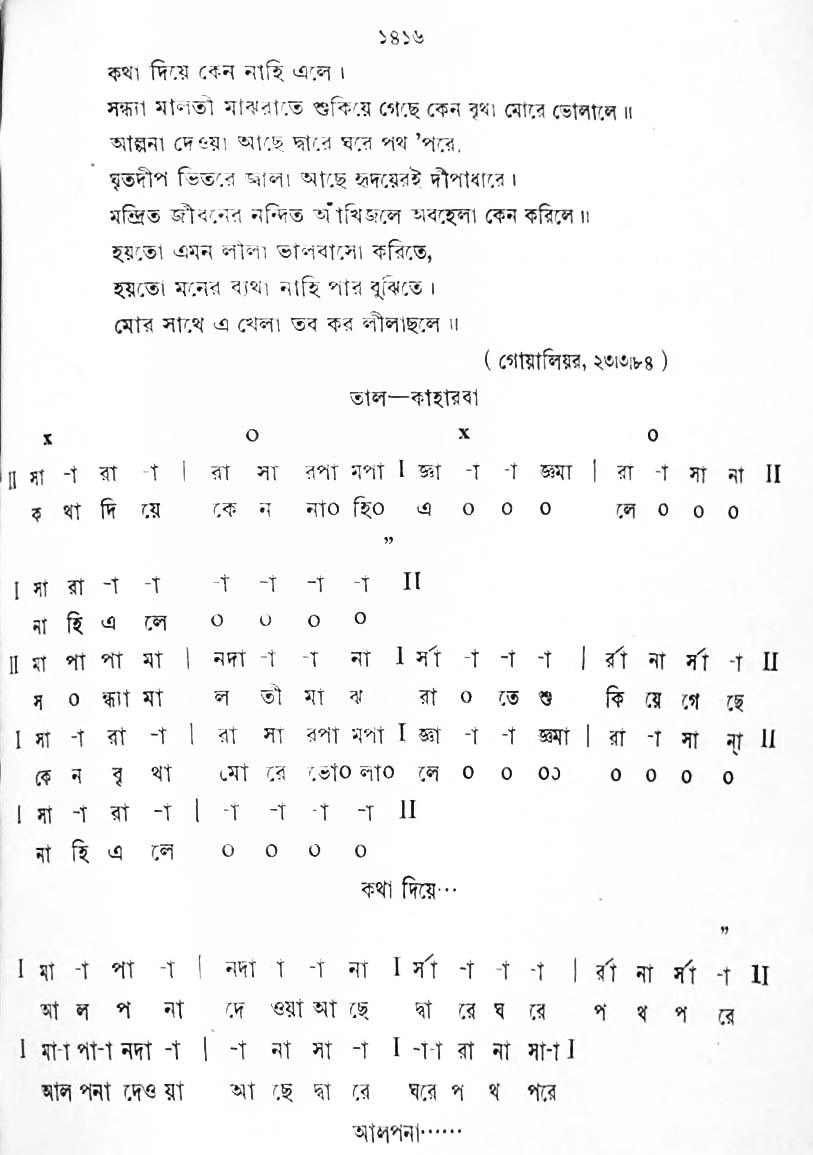 ১৪১৬
কথা দিয়ে কেন নাহি এলে ।
সন্ধ্যা মালতী মাঝরাতে শুকিয়ে গেছে কেন বৃথা মোরে ভোলালে ॥
আল্পনা দেওয়া আছে দ্বারে ঘরে পথ 'পরে,
ঘৃতদীপ ভিতরে জ্বালা আছে হৃদয়েরই দীপাধারে ।
মন্দ্রিত জীবনের নন্দিত আঁখিজলে অবহেলা কেন করিলে ॥
হয়তো এমন লীলা ভালবাসো করিতে,
হয়তো মনের ব্যথা নাহি পার বুঝিতে ।
মোর সাথে এ খেলা তব কর লীলাছলে ॥
( গোয়ালিয়র, ২৩।৩।৮৪ )
তাল—কাহারবা
x O x O
II সা -া রা -া | রা সা রপা মপা I জ্ঞা -া -া জ্ঞমা | রা -া সা না II
ক থা দি য়ে কে ন না০ হি০ এ ০ ০ ০ লে ০ ০ ০
”
I সা রা -া -া -া -া -া -া II
না হি এ লে ০ ০ ০ ০
II মা পা পা মা | নদা -া -া না I র্সা -া -া -া | র্রা না র্সা -া II
স ০ ন্ধ্যা মা ল তী মা ঝ রা ০ তে শু কি য়ে গে ছে
I সা -া রা -া | রা সা রপা মপা I জ্ঞা -া -া জ্ঞমা | রা -া সা ন্া II
কে ন বৃ থা মো রে ভো০ লা০ লে ০ ০ ০০ ০ ০ ০ ০
I সা -া রা -া | -া -া -া -া II
না হি এ লে ০ ০ ০ ০
কথা দিয়ে···
”
I মা -া পা -া | নদা া -া না I র্সা -া -া -া | র্রা না র্সা -া II
আ ল প না দে ওয়া আ ছে দ্বা রে ঘ রে প থ প রে
I মা-া পা-া নদা -া | -া না সা -া I -া-া রা না সা-া I
আল পনা দেও য়া আ ছে দ্বা রে ঘরে প থ পরে
আলপনা······